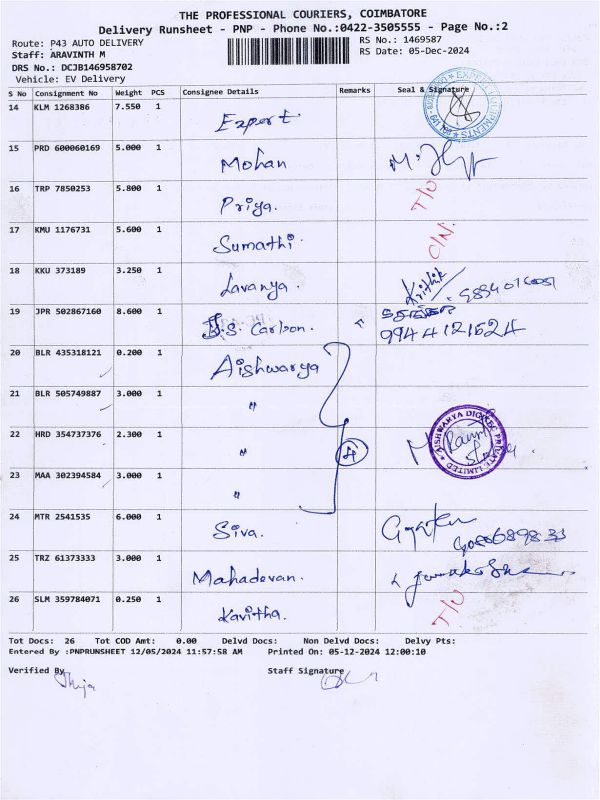 THE PROFESSIONAL COURIERS, COIMBATORE
Delivery Runsheet - PNP - Phone No.:0422-3505555 - Page No.:2
Route: P43 AUTO DELIVERY RS No.: 1469587
Staff: ARAVINTH M RS Date: 05-Dec-2024
DRS No.: DCJB146958702
Vehicle: EV Delivery
S No Consignment No Weight PCS Consignee Details Remarks Seal & Signature
14 KLM 1268386 7.550 1 Expert
15 PRD 600060169 5.000 1 Mohan
16 TRP 7850253 5.800 1 Priya. T/U
17 KMU 1176731 5.600 1 Sumathi. C/N.
18 KKU 373189 3.250 1 Lavanya. Krithik
19 JPR 502867160 8.600 1 S. Carbon. 9944121524
20 BLR 435318121 0.200 1 Aishwarya
21 BLR 505749887 3.000 1 "
22 HRD 354737376 2.300 1 " 4 AISHWARYA DIGITEC PRIVATE LIMITED
23 MAA 302394584 3.000 1 "
24 MTR 2541535 6.000 1 Siva.
25 TRZ 61373333 3.000 1 Mahadevan.
26 SLM 359784071 0.250 1 Kavitha. T/U
Tot Docs: 26 Tot COD Amt: 0.00 Delvd Docs: Non Delvd Docs: Delvy Pts:
Entered By :PNPRUNSHEET 12/05/2024 11:57:58 AM Printed On: 05-12-2024 12:00:10
Verified By Staff Signature